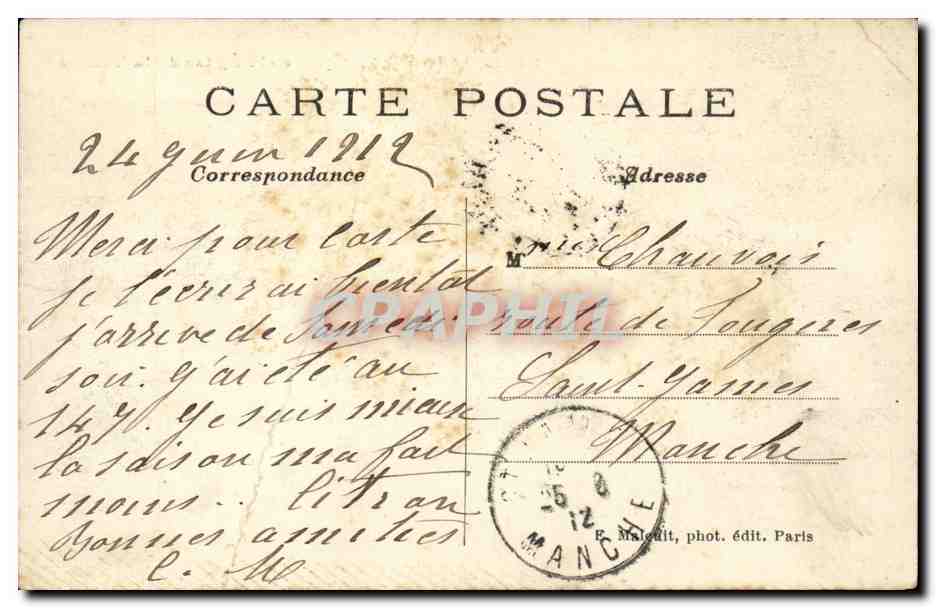 CARTE POSTALE
24 Juin 1912
Correspondance
Adresse
Merci pour carte
Je t'écrirai bientôt
j'arrive de Samedi
soir. J'ai été au
147. Je suis mieux
la saison m'a fait
moins..
Bonnes amitiés
C. M
Mme Chauvois
route de Fougères
Saint-James
Manche
25 6
12
MANCHE
E. Malcuit, phot. édit. Paris
CPAPHIL